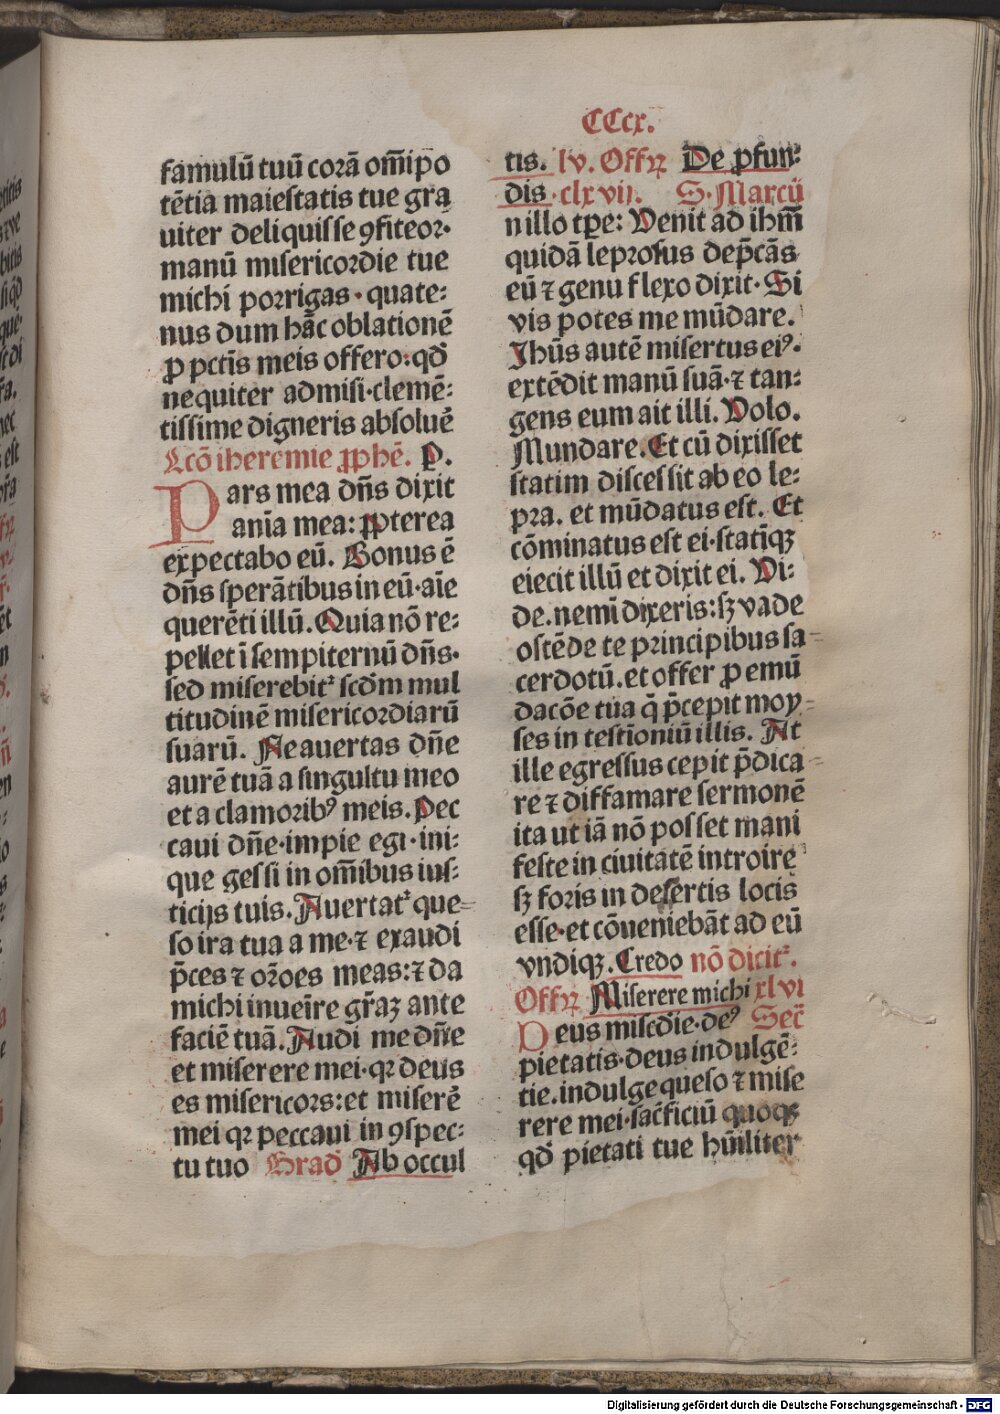 CCcx.
famulū tuū corā om̄ipo
tētia maiestatis tue gra
uiter deliquisse ꝯfiteor·
manū misericordie tue
michi porrigas· quate:
nus dum hāc oblationē
ꝓ pctīs meis offero: qd̄
nequiter admisi· clemē:
tissime digneris absoluē
Lcō iheremie ꝓphē. P.
Pars mea dn̄s dixit
anīa mea: ꝓpterea
expectabo eū. Bonus ē
dn̄s sperātibus in eū· aīe
querēti illū. Quia nō re:
pellet ī sempiternū dn̄s·
sed miserebitᷣ scd̄m mul
titudinē misericordiarū
suarū. Ne auertas dn̄e
aurē tuā a singultu meo
et a clamoribꝰ meis. Pec
caui dn̄e· impie egi· ini:
que gessi in om̄ibus ius:
ticijs tuis. Auertatᷣ que=
so ira tua a me· ⁊ exaudi
p̄ces ⁊ or̄oes meas: ⁊ da
michi inueīre gr̄aꝫ ante
faciē tuā. Audi me dn̄e
et miserere mei· qꝛ deus
es misericors: et miserē
mei qꝛ peccaui in ꝯspec:
tu tuo Grad̄ Ab occul
tis. lv. Offꝝ De ꝓfun:
dis· clxvij. S. Marcū
n illo tꝑe: Venit ad ihm̄
quidā leprosus dep̄cās
eū ⁊ genu flexo dixit· Si
vis potes me mūdare.
Jhūs autē misertus eiꝰ·
extēdit manū suā· ⁊ tan:
gens eum ait illi. Volo.
Mundare. Et cū dixisset
statim discessit ab eo le:
pra. et mūdatus est. Et
cōminatus est ei· statīqꝫ
eiecit illū et dixit ei. Vi:
de. nemī dixeris: sꝫ vade
ostēde te principibus sa=
cerdotū. et offer ꝓ emū
dacōe tua q̄ p̄cepit moy=
ses in testīoniū illis. At
ille egressus cepit p̄dica=
re ⁊ diffamare sermonē
ita ut iā nō posset mani
feste in ciuitatē introire
sꝫ foris in desertis locis
esse· et cōueniebāt ad eū
vndiqꝫ. Credo nō dicitᷣ.
Offꝝ Miserere michi xlvi
Deus miscd̄ie· deꝰ Secr̄
pietatis· deus indulgē:
tie. indulge queso ⁊ mise
rere mei· sac̄ficiū quoqꝫ
qd̄ pietati tue hūiliter
Digitalisierung gefördert durch die Deutsche Forschungsgemeinschaft - DFG